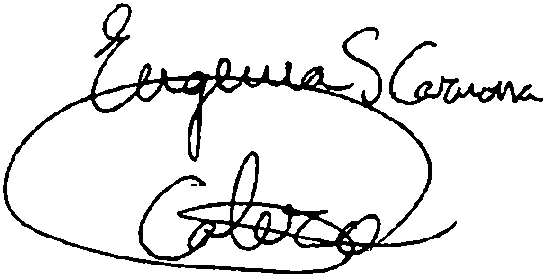 Eugenia S Carmona
Calero